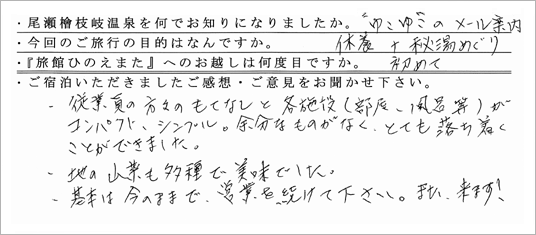 ・尾瀬檜枝岐温泉を何でお知りになりましたか。"ゆこゆこ"のメール案内
・今回のご旅行の目的はなんですか。 休養 + 秘湯めぐり
・『旅館ひのえまた』へのお越しは何度目ですか。 初めて
・ご宿泊いただきましたご感想・ご意見をお聞かせ下さい。
- 従業員の方々のもてなしと各施設(部屋、風呂等)が
コンパクト、シンプル。余分なものがなく、とても落ち着く
ことができました。
- 地の山菜も多種で美味でした。
- 基本は今のままで、営業を続けて下さい。また、来ます!